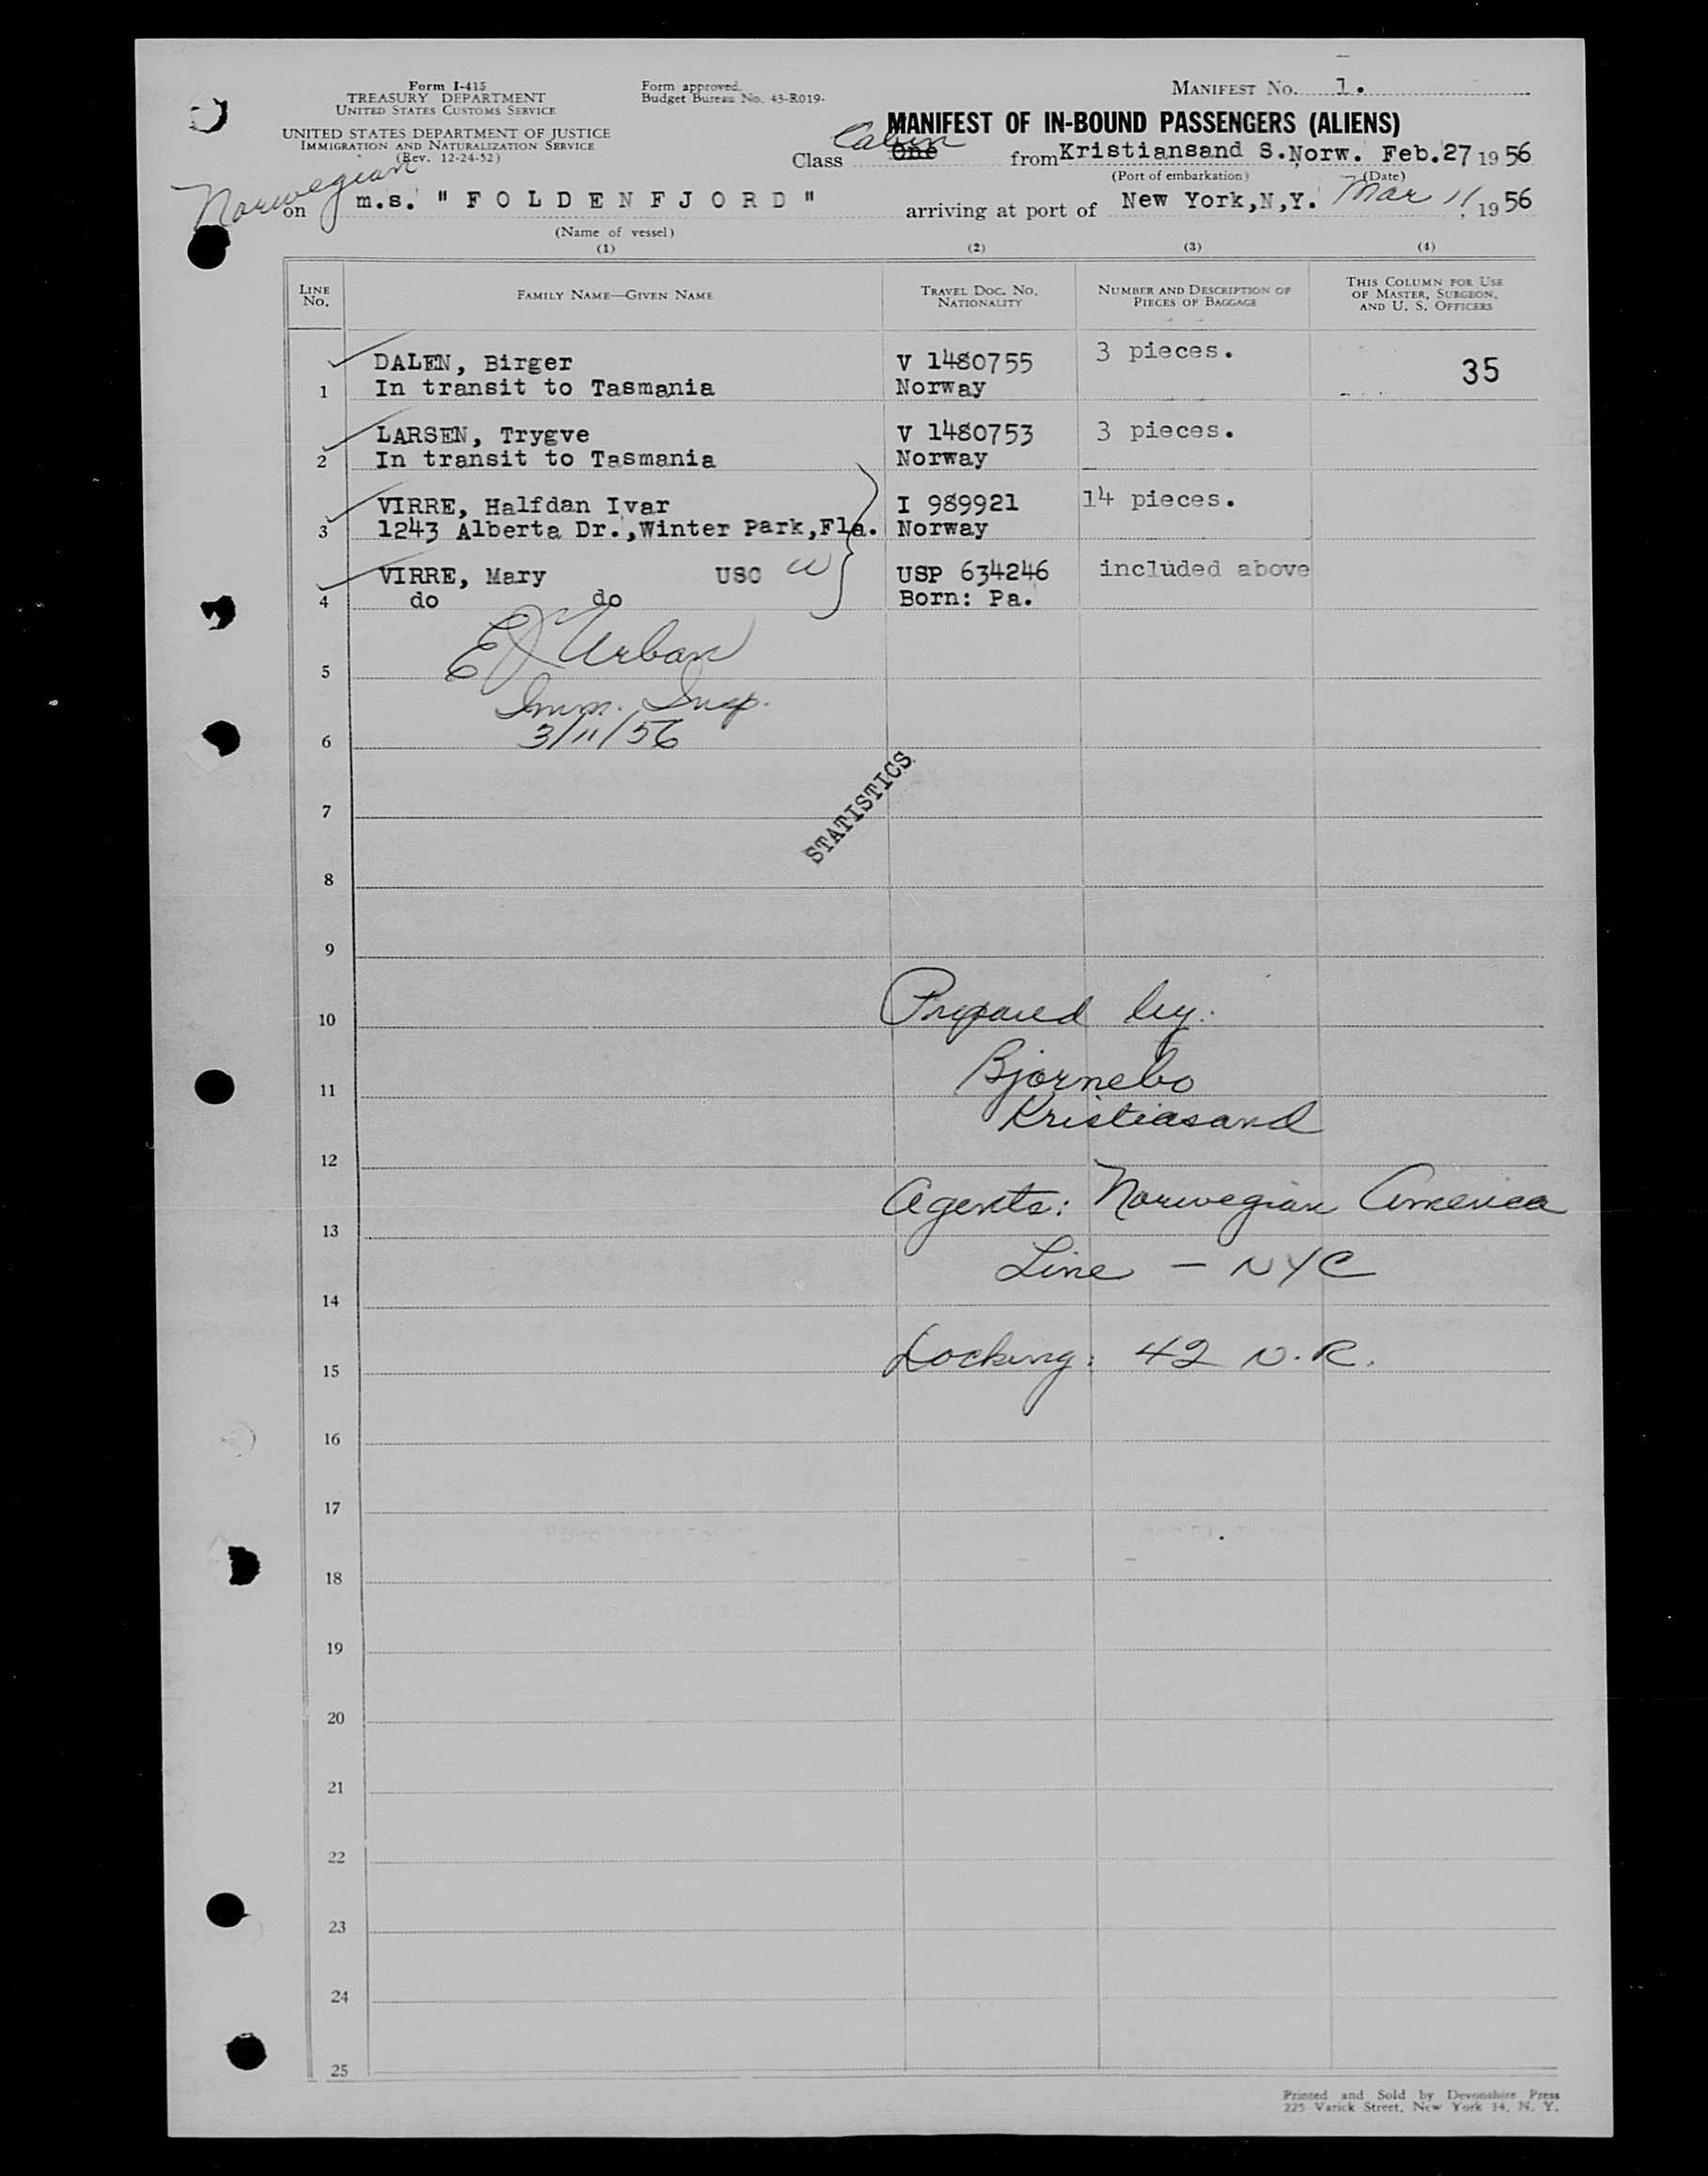 Form I-415
TREASURY DEPARTMENT
UNITED STATES CUSTOMS SERVICE
UNITED STATES DEPARTMENT OF JUSTICE
IMMIGRATION AND NATURALIZATION SERVICE
(Rev. 12-24-52)
Form approved.
Budget Bureau No. 43-R019-
MANIFEST No. 1.
MANIFEST OF IN-BOUND PASSENGERS (ALIENS)
Cabin
Class One from Kristiansand S.Norw. Feb.27 1956
(Port of embarkation) (Date)
Norwegian
on m.s. "FOLDENFJORD" arriving at port of New York,N,Y. Mar 11, 1956
(Name of vessel)
(1) (2) (3) (4)
LINE No. FAMILY NAME—GIVEN NAME TRAVEL DOC. NO. NATIONALITY NUMBER AND DESCRIPTION OF PIECES OF BAGGAGE THIS COLUMN FOR USE OF MASTER, SURGEON, AND U. S. OFFICERS
DALEN, Birger V 1480755 3 pieces. 35
1 In transit to Tasmania Norway
LARSEN, Trygve V 1480753 3 pieces.
2 In transit to Tasmania Norway
VIRRE, Halfdan Ivar I 989921 14 pieces.
3 1243 Alberta Dr.,Winter Park,Fla. Norway
VIRRE, Mary USC W USP 634246 included above
4 do do Born: Pa.
E J Urban
5
Imm. Insp.
6 3/11/56
STATISTICS
7
8
9
10 Prepared by:
11 Bjornebo
Kristiasand
12
Agents: Norwegian America
13
Line - NYC
14
15 Docking: 42 N.R.
16
17
18
19
20
21
22
23
24
25
Printed and Sold by Devonshire Press
225 Varick Street, New York 14, N. Y.